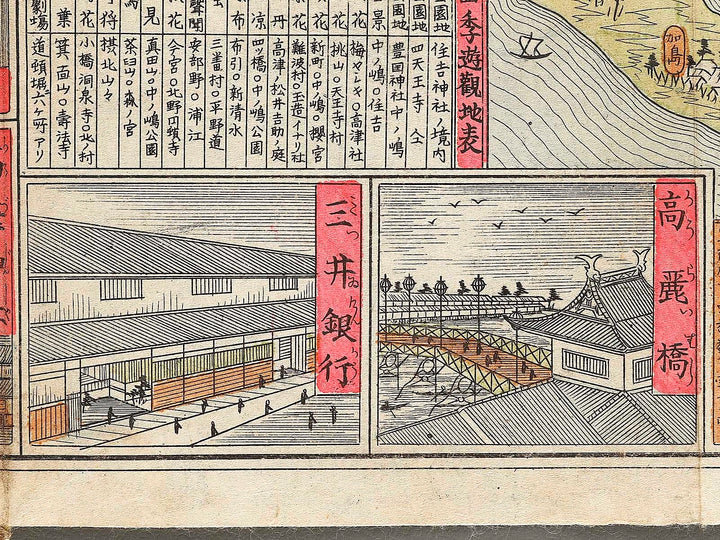 加島
季遊觀地表
園地 住吉神社ノ境内
園地 四天王寺 仝
園地 豊国神社中ノ嶋
景 中ノ嶋○住吉
花 梅ヤシキ○高津社
花 桃山○天王寺村
花 新町○中ノ嶋○櫻宮
花 難波村○玉造イナリ社
丹 高津ノ松井吉助ノ庭
凉 四ツ橋○中ノ嶋公園
花 布引○新清水
三番村○平野道
聞 安部野○浦江
花 今宮○北野円頓寺
見 真田山○中ノ嶋公園
茶臼山○森ノ宮
狩 摂北山々
花 小橋洞泉寺○北村
葉 箕面山○壽法寺
劇場 道頓堀六ヶ所アリ
高麗橋
三井銀行